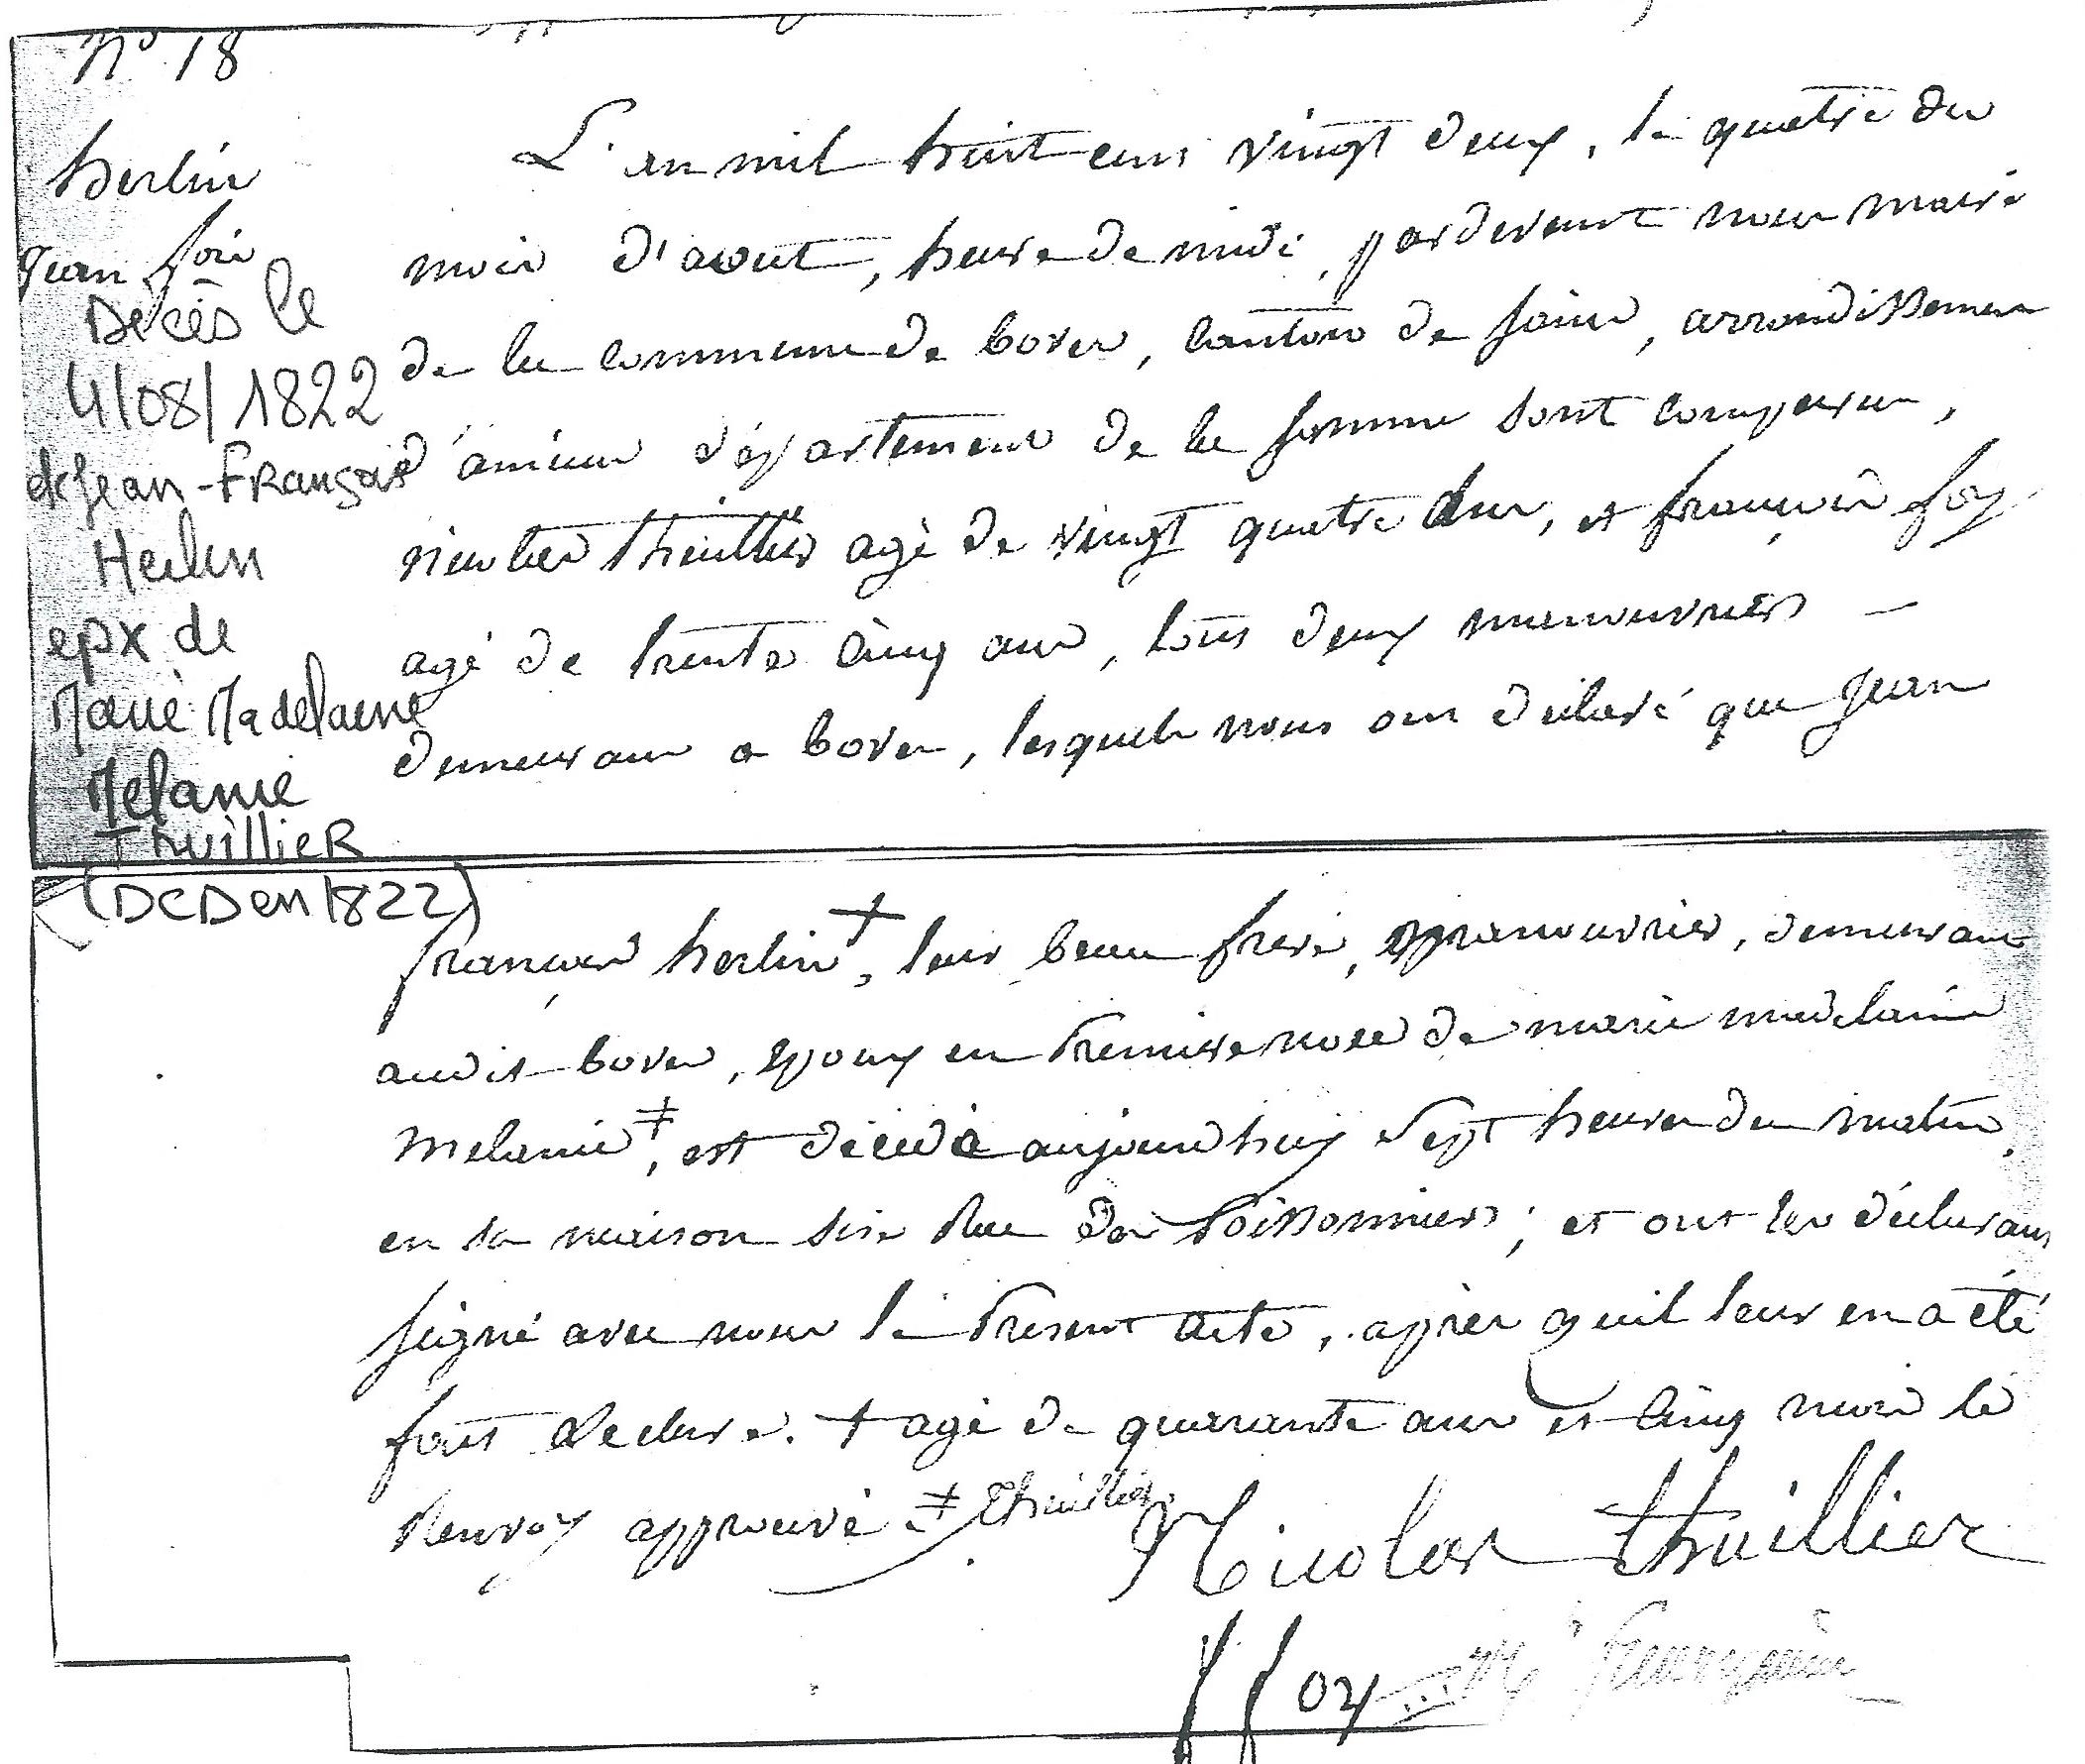 n° 18
herlin
Jean fois
Décès le
4/08/1822
de Jean-François
Herlin
epx de
Marie Madelaene
Melanie
Thuillier
(DCD en 1822)
L'an mil huit cens vingt deux, le quatre du
mois d'aout, heure de midi, pardevant nous maire
de la commune de boves, canton de sains, arrondissement
d'amiens département de la somme sont comparus,
nicolas thuillier agé de vingt quatre ans, et françois foy
agé de trente cinq ans, tous deux manouvriers —
demeurans a boves, lesquels nous ont déclaré que Jean
françois herlin +, leur beau frere, manouvrier, demeurant
audit boves, epoux en premiere noce de marie madelaine
melanie ‡, est décédé aujourdhuy sept heures du matin,
en sa maison sise Rue des poissonniers; et ont les déclarans
signé avec nous le present acte, après quil leur en a été
fait lecture. + agé de quarante ans et cinq mois le
Renvoy approuvé ‡ thuillier
Nicolas thuillier
f foy